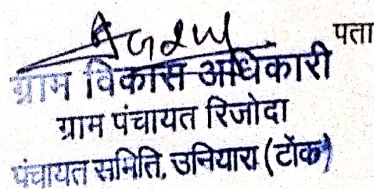 पता
ग्राम विकास अधिकारी
ग्राम पंचायत रिजोदा
पंचायत समिति, उनियारा (टोंक)